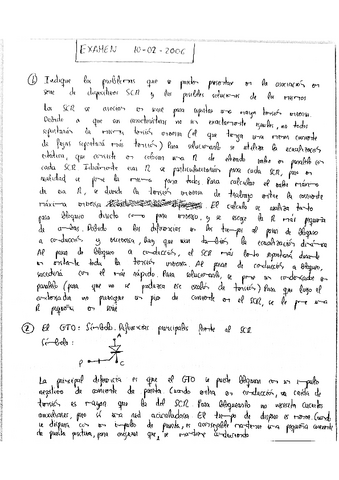 EXAMEN 10-02-2006
① Indique los problemas que se pueden presentar en la asociación en
serie de dispositivos SCR y las posibles soluciones de los mismos
Los SCR se asocian en serie para soportar una mayor tensión inversa.
Debido a que sus características no son exactamente iguales, no todos
soportarán la misma tensión inversa (el que tenga una menor corriente
de fugas soportará más tensión) Para solucionarlo se utiliza la ecualización
estática, que consiste en colocar una R de elevado valor en paralelo con
cada SCR Idealmente esas R se particularizarían para cada SCR, pero en
realidad se pone la misma para todos. Para calcular el valor máximo
de esa R, se divide la tensión inversa de trabajo entre la corriente
máxima inversa El cálculo se realiza tanto
para bloqueo directo como para inverso, y se escoge la R más pequeña
de ambas. Debido a las diferencias en los tiempos al pasar de bloqueo
a conducción y viceversa, hay que usar también la ecualización dinámica
Al pasar de bloqueo a conducción, el SCR más lento soportará durante
un instante toda la tensión inversa. Al pasar de conducción a bloqueo,
sucederá con el más rápido. Para solucionarlo, se pone un condensador en
paralelo (para que no se produzca ese escalón de tensión) Para que luego el
condensador no provoque un pico de corriente en el SCR, se le pone una
R pequeña en serie
② El GTO: Símbolo. Diferencias principales frente al SCR
Símbolo:
A
P C
La principal diferencia es que el GTO se puede bloquear con un impulso
negativo de corriente de puerta Cuando entra en conducción, su caída de
tensión es mayor que la del SCR Para bloquearlo no necesita circuitos
auxiliares, pero sí una red El tiempo de disparo es menor Cuando
se dispara con un impulso de puerta, es aconsejable mantener una pequeña corriente
de puerta positiva, para asegurar que se mantiene conduciendo